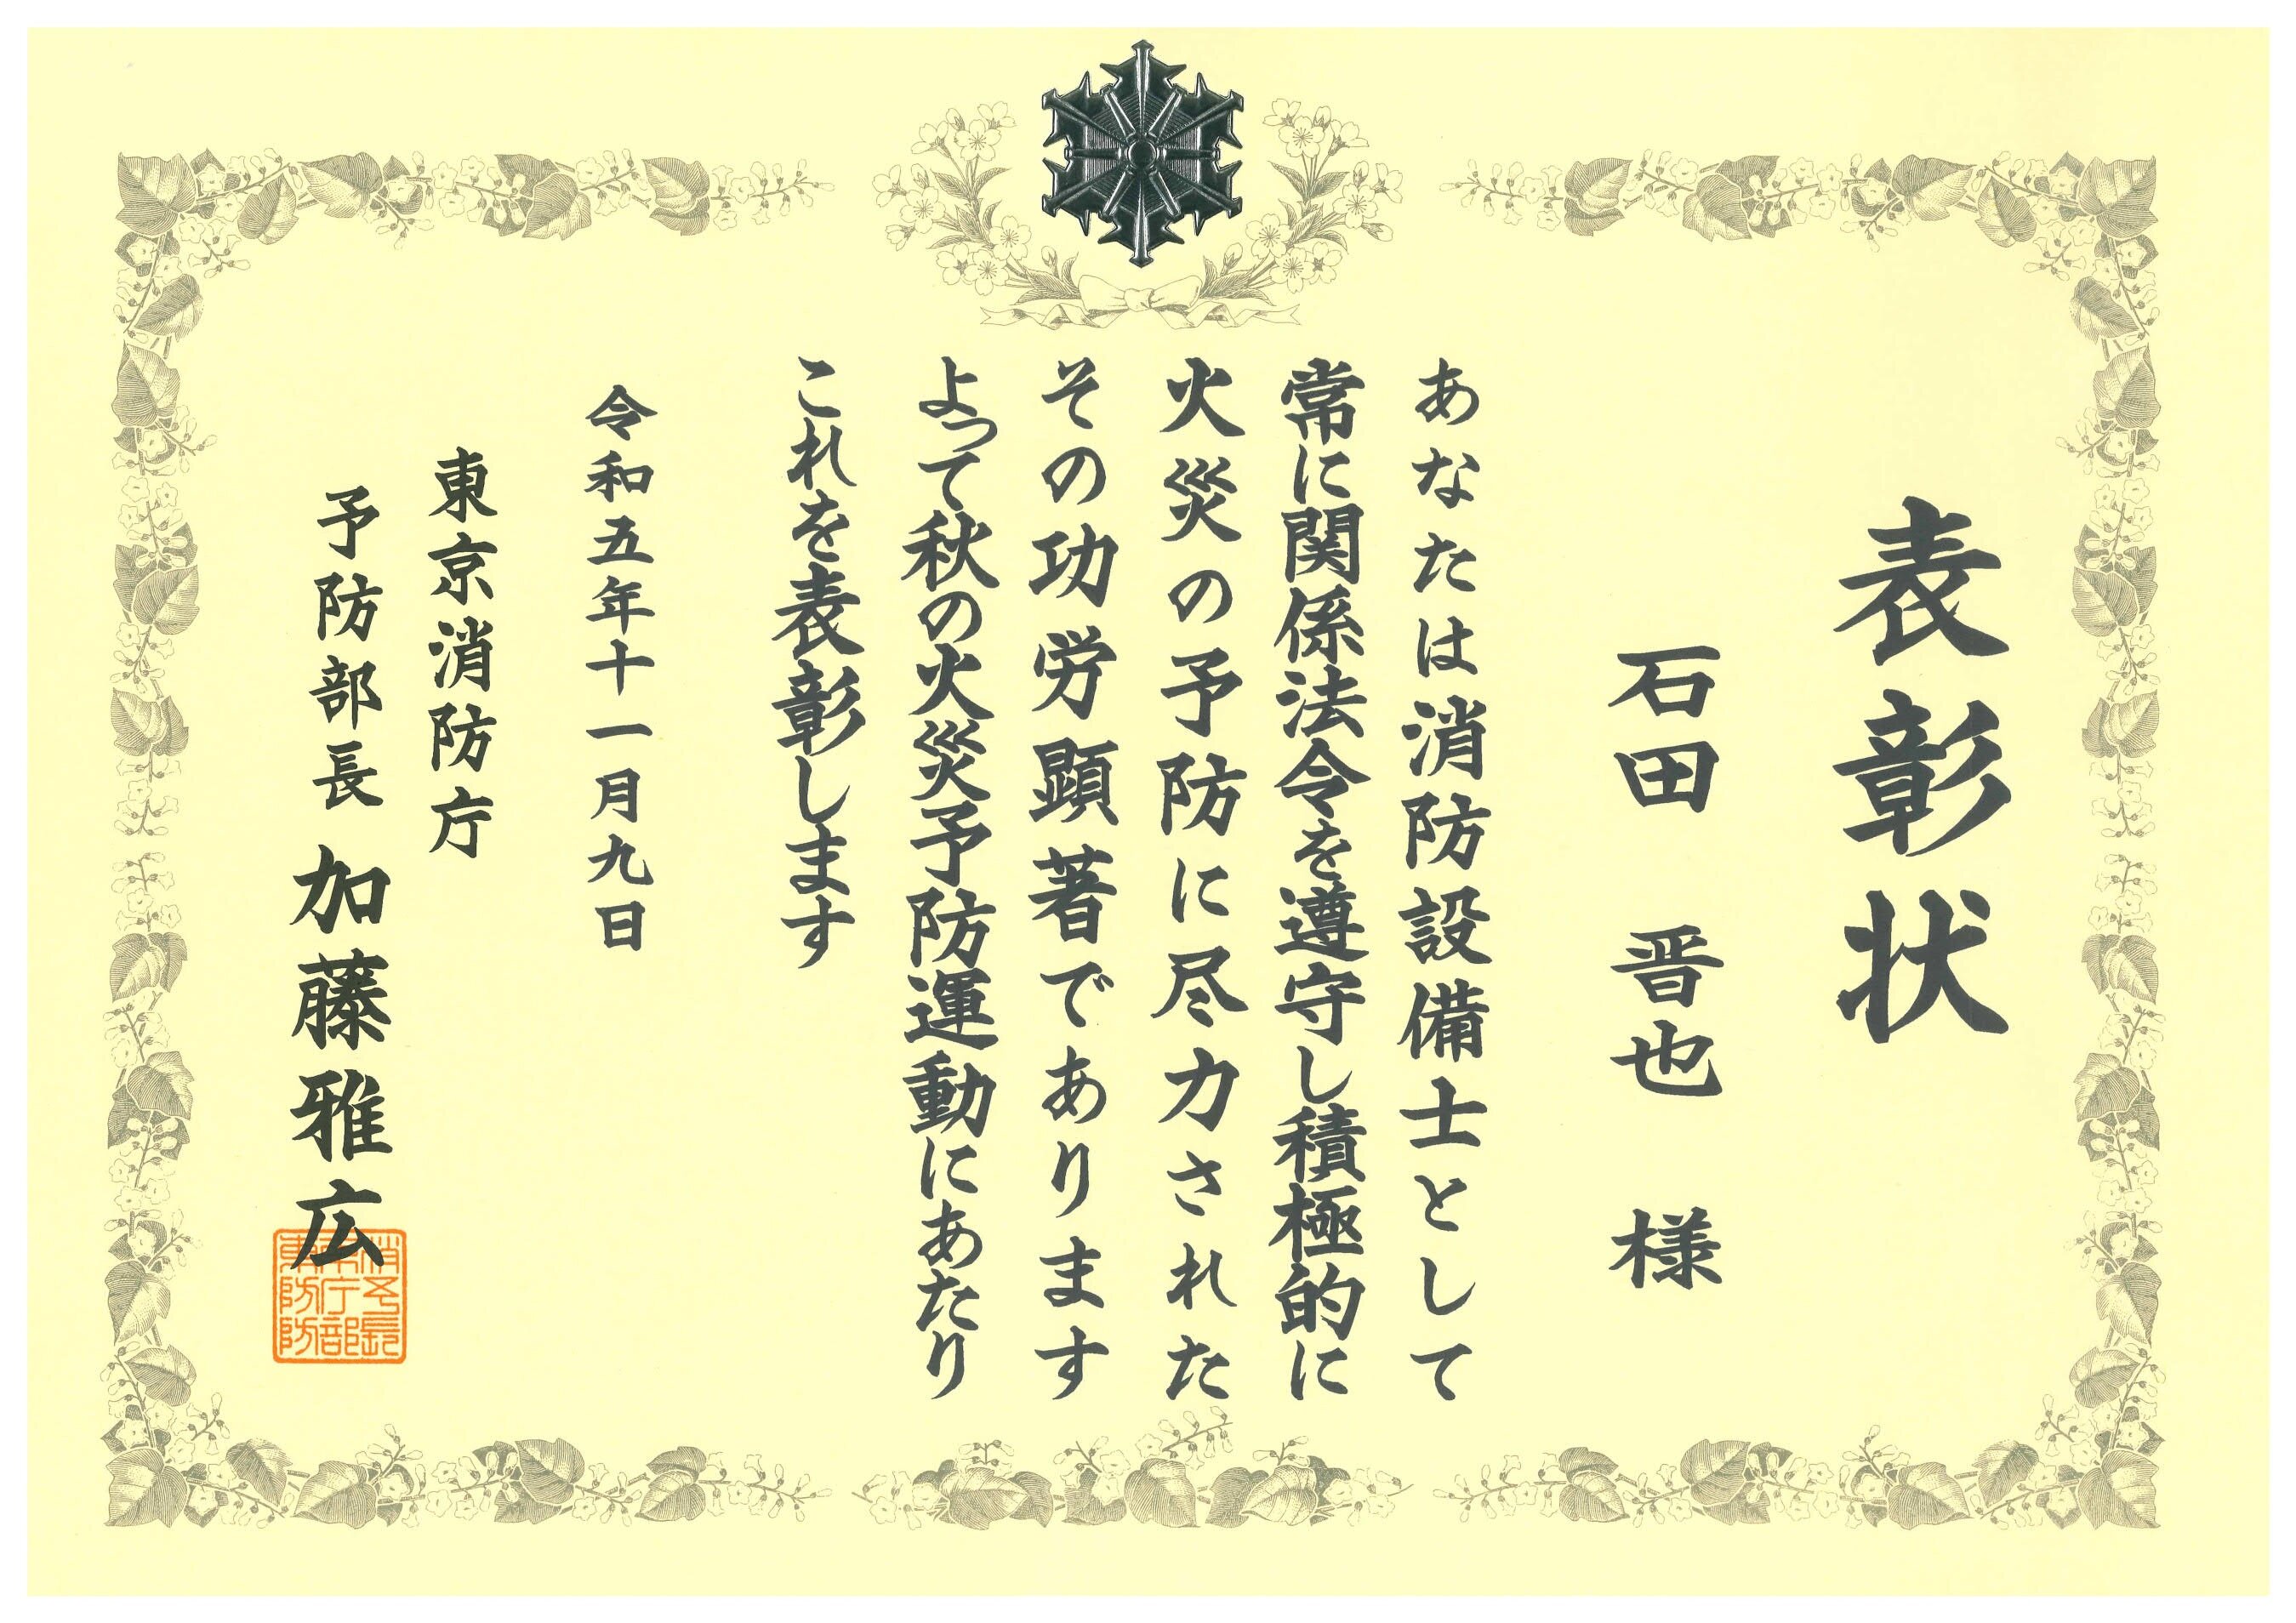 表彰状
石田 晋也 様
あなたは消防設備士として
常に関係法令を遵守し積極的に
火災の予防に尽力された
その功労顕著であります
よって秋の火災予防運動にあたり
これを表彰します
令和五年十一月九日
東京消防庁
予防部長 加藤雅広